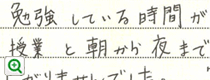 勉強している時間が
授業と朝から夜まで
がりませんでした。